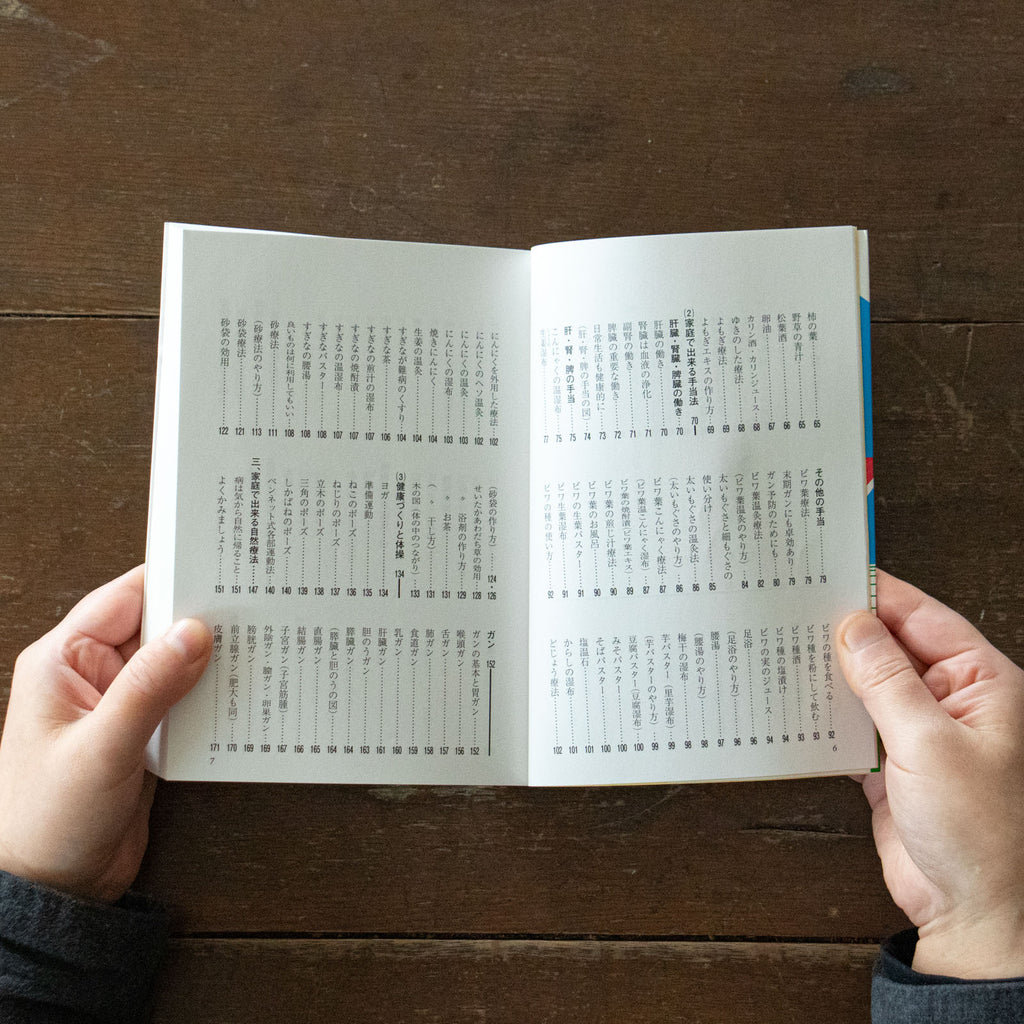 柿の葉……65
野草の青汁……65
松葉酒……66
卵油……67
カリン酒・カリンジュース……68
ゆきのした療法……68
よもぎ療法……69
よもぎエキスの作り方……69
(2)家庭で出来る手当法 70
肝臓・腎臓・脾臓の働き……70
肝臓の働き……70
腎臓は血液の浄化……71
副腎の働き……71
脾臓の重要な働き……72
日常生活も健康的に……73
(肝・腎・脾の手当の図……74
肝・腎・脾の手当……75
こんにゃくの温湿布……75
生姜湿布……77
その他の手当……79
ビワ葉療法……79
末期ガンにも卓効あり……79
ガン予防のためにも……80
ビワ葉温灸療法……82
(ビワ葉温灸のやり方)……84
太いもぐさと細もぐさの
使い分け……85
太いもぐさの温灸法……86
(太いもぐさのやり方)……86
ビワ葉こんにゃく療法……87
(ビワ葉温こんにゃく湿布)……87
ビワ葉の焼酎漬(ビワ葉エキス)……89
ビワ葉の煎じ汁療法……90
ビワ葉のお風呂……90
ビワの生葉パスター……91
ビワ生葉湿布……91
ビワの種の使い方……92
ビワの種を食べる……92
ビワ種を粉にして飲む……93
ビワ種酒……93
ビワ種の塩漬け……94
ビワの実のジュース……94
足浴……96
(足浴のやり方)……96
腰湯……97
(腰湯のやり方)……98
梅干の湿布……98
芋パスター(里芋湿布)……99
(芋パスターのやり方)……99
豆腐パスター(豆腐湿布)……100
みそパスター……100
そばパスター……101
塩温石……101
からしの湿布……101
どじょう療法……102
6
にんにくを外用した療法……102
にんにくのヘソ温灸……102
にんにくの温灸……103
にんにくの湿布……103
焼きにんにく……104
生姜の温灸……104
すぎなが難病のくすり……104
すぎな茶……106
すぎなの煎汁の湿布……107
すぎなの焼酎漬……107
すぎなの温湿布……107
すぎなパスター……108
すぎなの腰湯……108
良いものは何に利用してもいい……108
砂療法……111
(砂療法のやり方)……113
砂袋療法……121
砂袋の効用……122
(砂袋の作り方)……124・126
せいたかあわだち草の効用……128
〃 浴剤の作り方……129
〃 お茶……131
(〃 〃 干し方)……131
木の図(体の中のつながり)……133
(3)健康づくりと体操 134
ヨガ……134
準備運動……135
ねこのポーズ……136
ねじりのポーズ……137
立木のポーズ……138
三角のポーズ……139
しかばねのポーズ……140
ベンネット式各部運動法……140
三、家庭で出来る自然療法……147
病は気から自然に帰ること……151
よくかみましょう……151
ガン 152
ガンの基本と胃ガン……152
喉頭ガン……156
舌ガン……157
肺ガン……158
食道ガン……159
乳ガン……160
肝臓ガン……161
胆のうガン……163
膵臓ガン……164
(膵臓と胆のうの図)……164
直腸ガン……165
結腸ガン……166
子宮ガン(子宮筋腫)……167
外陰ガン・膣ガン・卵巣ガン……169
膀胱ガン……169
前立腺ガン(肥大も同)……170
皮膚ガン……171
7